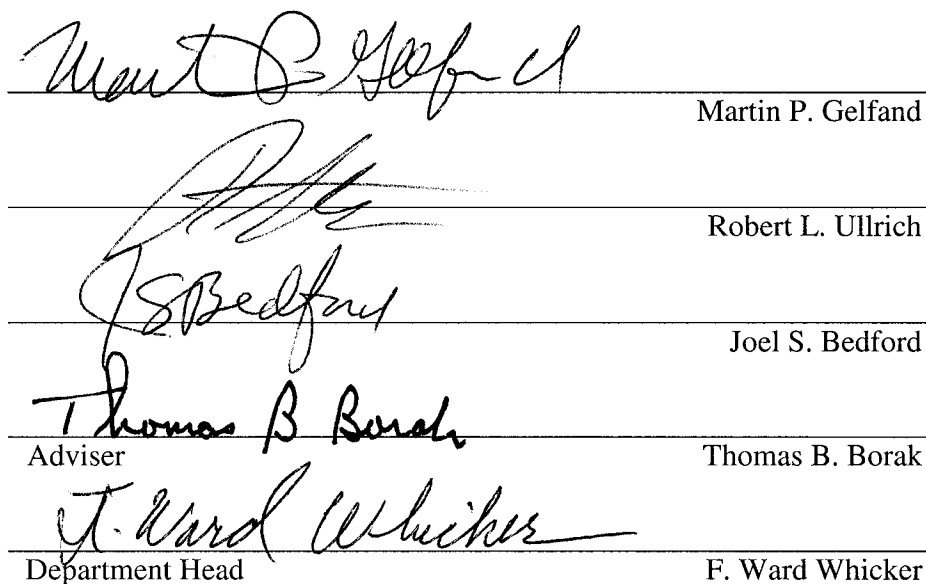 Mart P Gelfand
Martin P. Gelfand
Robert L. Ullrich
JSBedford
Joel S. Bedford
Thomas B Borak
Adviser Thomas B. Borak
F. Ward Whicker
Department Head F. Ward Whicker